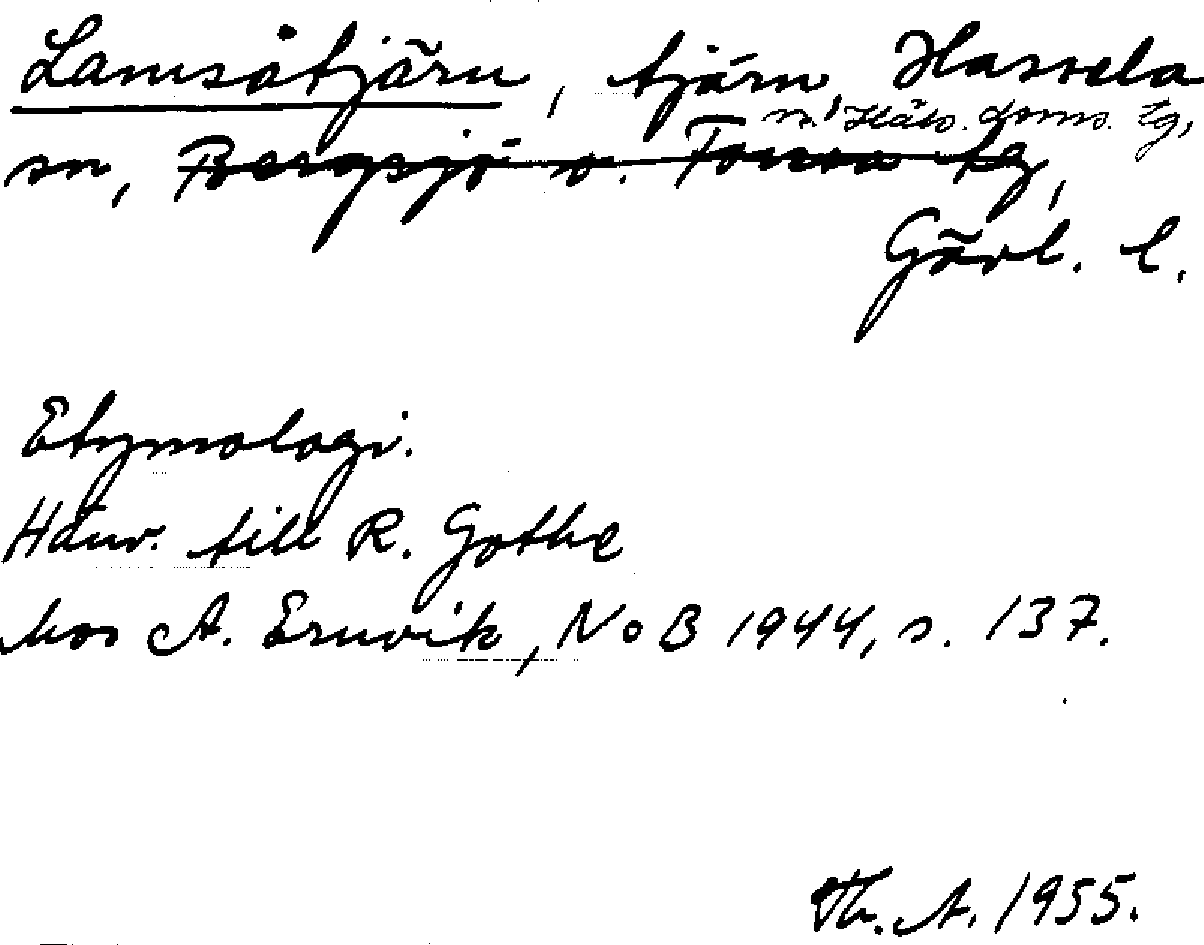 Lamsåtjärn, tjärn, Hassela
n. Häls. doms. tg,
sn, Bergsjö o. Forssa tg,
Gävl. l.
Etymologi.
Hänv. till R. Gothe
hos A. Ernvik, NoB 1944, s. 137.
Th. A. 1955.